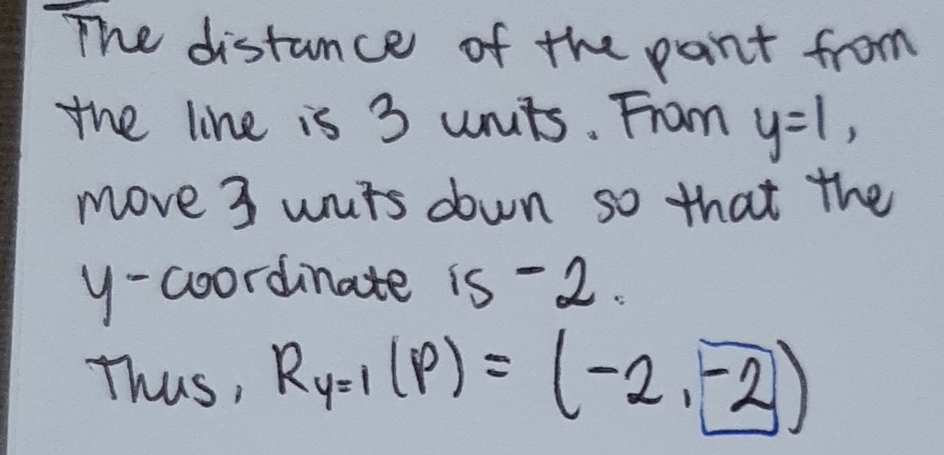 The distance of the point from
the line is 3 units. From y=1,
move 3 units down so that the
y-coordinate is -2.
Thus, Ry=1(P) = (-2,-2)